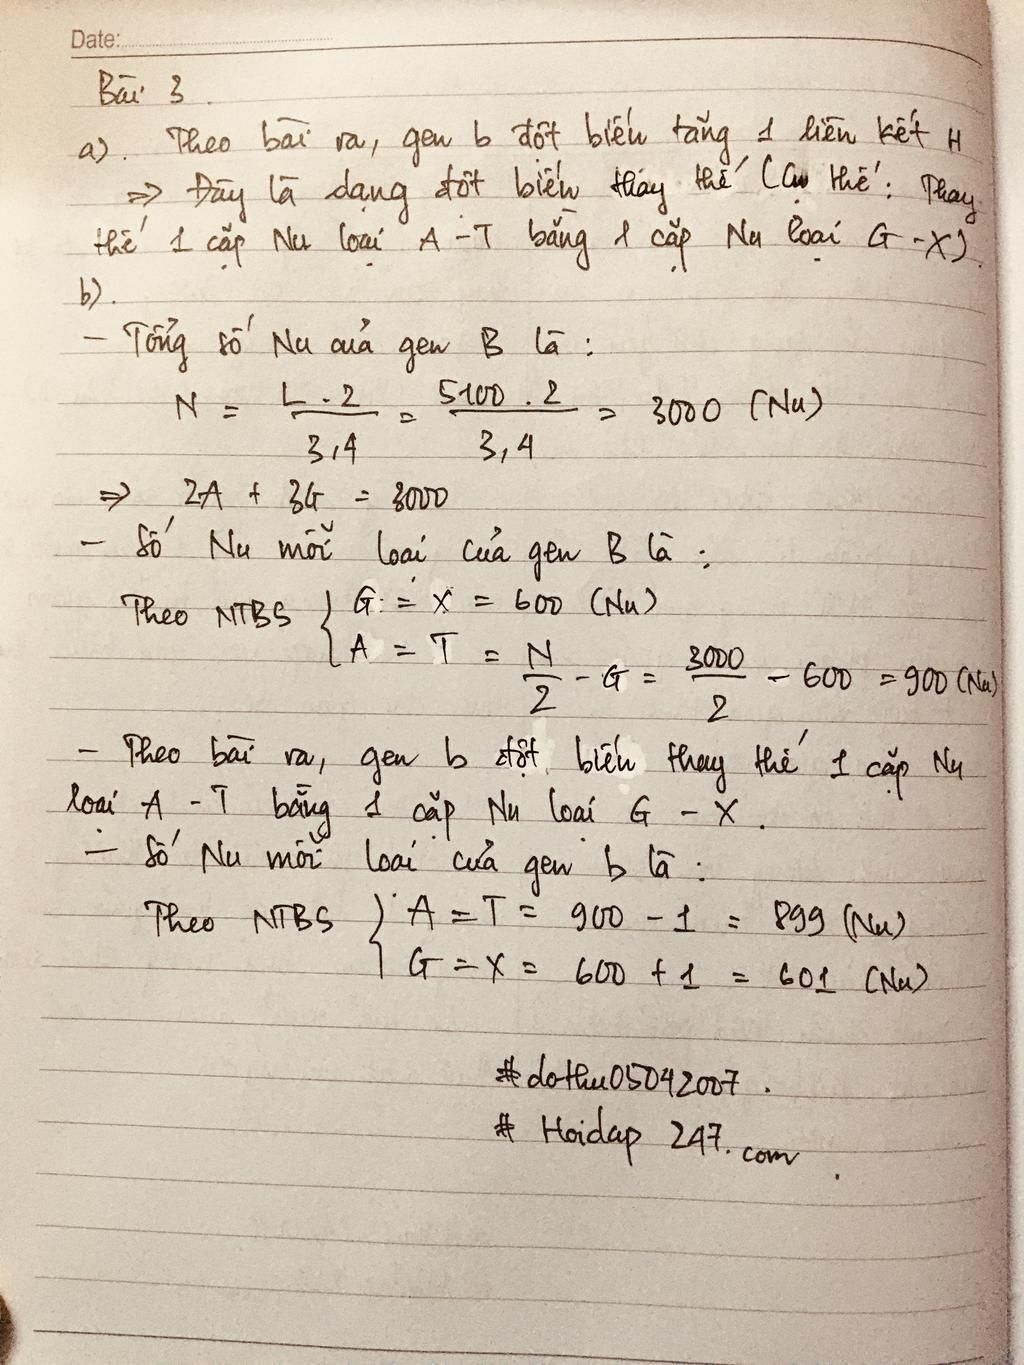 Date:
Bài 3.
a). Theo bài ra, gen b đột biến tăng 1 liên kết H
=> Đây là dạng đột biến thay thế (Cụ thế: Thay
thế 1 cặp Nu loại A - T bằng 1 cặp Nu loại G - X).
b).
- Tổng số Nu của gen B là:
N = L . 2 / 3,4 = 5100 . 2 / 3,4 = 3000 (Nu)
=> 2A + 3G = 3000
- Số Nu mỗi loại của gen B là:
Theo NTBS { G = X = 600 (Nu)
A = T = N / 2 - G = 3000 / 2 - 600 = 900 (Nu)
- Theo bài ra, gen b đột biến thay thế 1 cặp Nu
loại A - T bằng 1 cặp Nu loại G - X.
- Số Nu mỗi loại của gen b là:
Theo NTBS } A = T = 900 - 1 = 899 (Nu)
G = X = 600 + 1 = 601 (Nu)
#dothu05042007.
# Hoidap 247.com